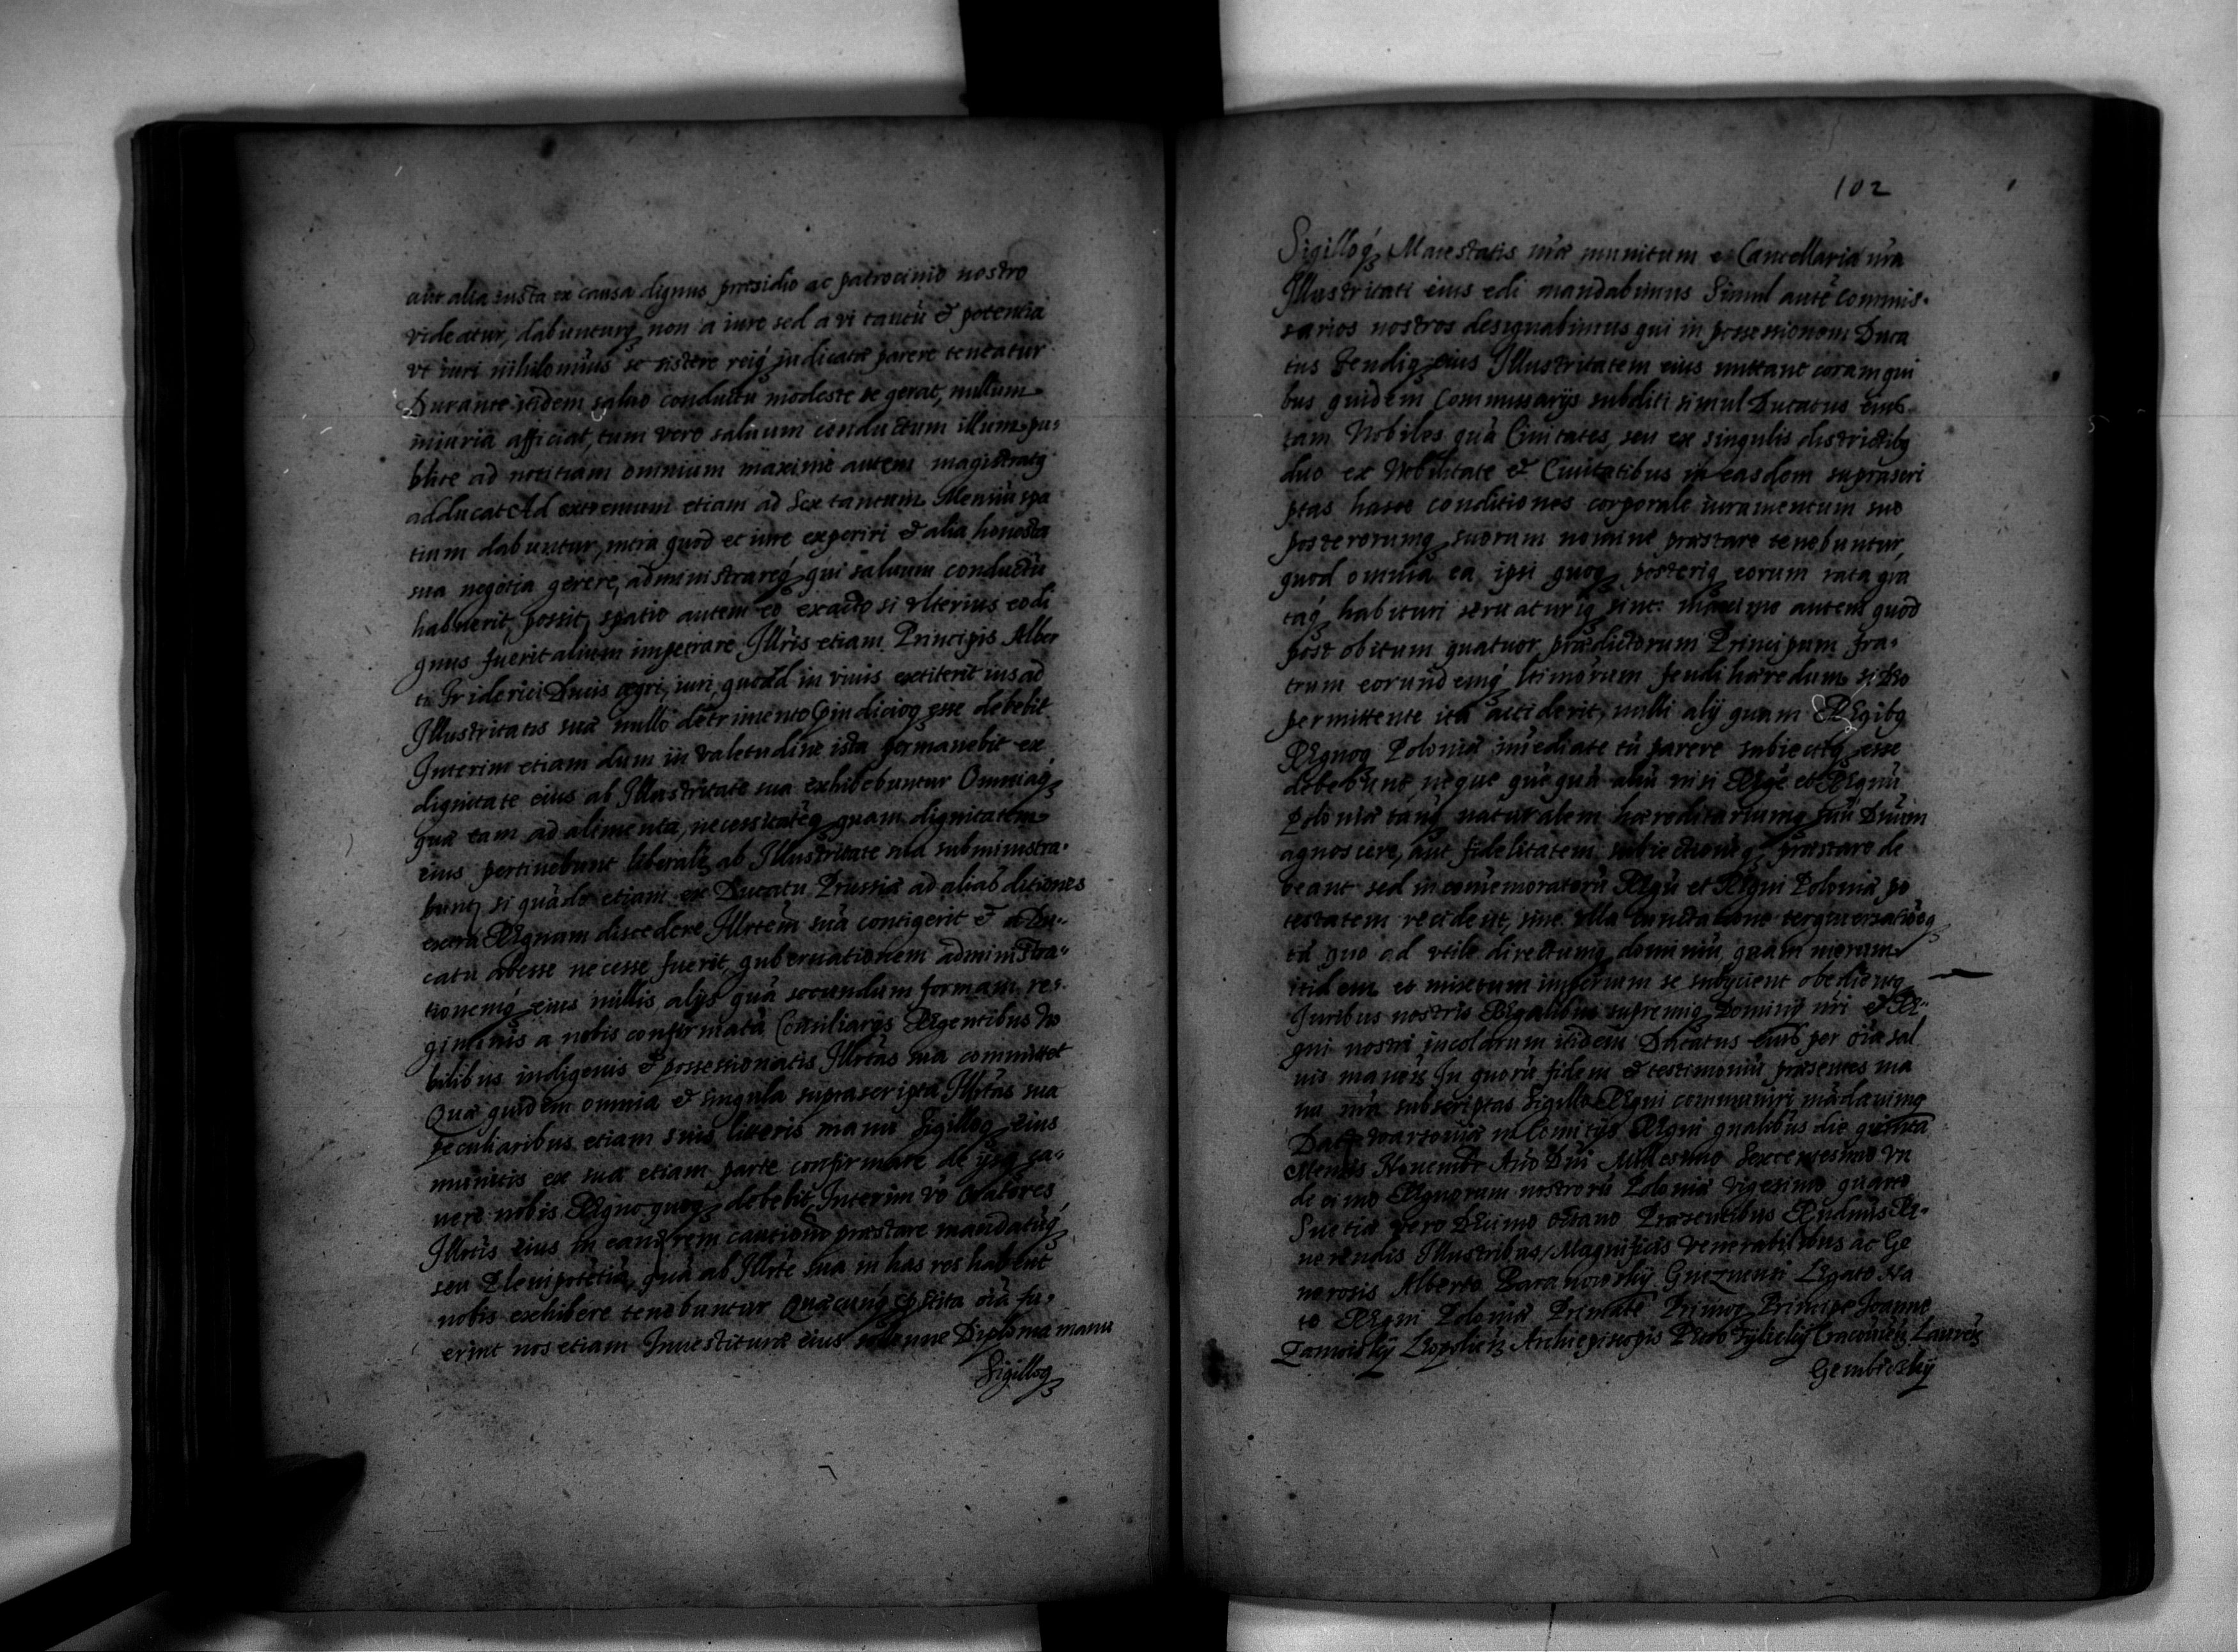 aut alia iusta ex causa dignus præsidio ac patrocinio nostro
videatur, dabunturq non a iure sed a vi tantū & potentia
vt iuri nihilominus se sistere reiq judicatæ parere teneatur
Durante itidem saluo conductu modeste se gerat, nullum
iniuria afficiat, tum vero saluum conductum illum pu-
blice ad notitiam omnium maxime autem magistratq
adducat Ad extremum etiam ad Sex tantum Mensiū spa
tium dabuntur, intra quod et iure experiri & alia honesta
sua negotia gerere, administrareq qui saluum conductū
habuerit, possit, spatio autem eo exacto si vlterius eo di
gnus fuerit alium impetrare Illris etiam Principis Alber
ti Friderici Ducis ægri, iuri, quoad in viuis extiterit ius ad
Illustritatis suæ nullo detrimento præiudicioq esse debebit
Interim etiam dum in valetudine ista permanebit ex
dignitate eius ab Illustritate sua exhibebuntur Omniaq
quæ tam ad alimenta, necessitatēq quam dignitatem
eius pertinebunt liberalr ab Illustritate sua subministra-
bunt, si quādo etiam ex Ducatu Prussiæ ad alias ditiones
extra Regnum discedere Illrtem suā contigerit & a Du-
catu abesse necesse fuerit, gubernationem administra-
tionemq eius nullis alijs quā secundum formam re-
giminis a nobis confirmatā Consiliarijs Regentibus No
bilibus indigenis & possessionatis Illrtas sua committet
Quæ quidem omnia & singula suprascripta Illrtas sua
peculiaribus etiam suis literis manu Sigilloq eius
munitis ex sua etiam parte confirmare de ijsq ca-
uere nobis Regno quoq debebit, Interim vō Oratores
Illrtis eius in eandem rem cautionē præstare mandatūq
seu Plenipotētiā, quā ab Illrte sua in has res habent
nobis exhibere tenebuntur Quæcunq præstita oīa fu-
erint nos etiam Inuestituræ eius solenne Diploma manu
Sigilloq
102
Sigilloq Maiestatis nræ munitum e Cancellaria nra
Illustritati eius edi mandabimus Simul autē Commis-
sarios nostros designabimus qui in possessionem Duca
tus Feudiq eius Illustritatem eius mittant coram qui
bus quidem Commissarijs subditi simul Ducatus eius
tam Nobiles quā Ciuitates, seu ex singulis districtibq
duo ex Nobilitate & Ciuitatibus in easdem suprascri
ptas hasce conditiones corporale iuramentum suo
posterorumq suorum nomine præstare tenebuntur,
quod omnia ea ipsi quoq posteriq eorum rata gra
taq habituri seruaturiq sint: maxime autem quod
post obitum quatuor prædictorum Principum fra-
trum eorundemq ltimorum feudi hæredum si Deo
permittente ita acciderit, nulli alij quam Regibq
Regnoq Poloniæ imēdiate tū parere subiectiq esse
debebunt, neque quēquā aliū nisi Regē et Regnū
Poloniæ tanq naturalem hæreditariumq suū Dnum
agnoscere, aut fidelitatem subiectionēq præstare de
beant sed in comemoratorū Regū et Regni Poloniæ po
testatem recident, sine vlla cunctatione tergiuersatioēq
tā quo ad vtile directumq dominiū, quam merum
itidem et mixtum imperium se subijcient obedientq
Juribus nostris Regalibus supremiq Dominij nri & Re-
gni nostri incolarum itidem Ducatus eius per oīa sal
uis manētib In quorū fidem & testimoniū præsentes ma
nu nra subscriptas Sigillo Regni communiri mādauimq
Datt Warsouiæ in Comitijs Regni gnalibus die quinta
Mensis Nouembr Año Dni Millesimo Sexcentesimo Vn
decimo Regnorum nostrorū Poloniæ Vigesimo quarto
Suetiæ vero Decimo octauo Præsentibus Reudmis Re-
uerendis Illustribus, Magnificis Venerabilibus ac Ge
nerosis Alberto Baranowskÿ Gneznensi Legato Na
to Regni Poloniæ Primate Primoq Principe Joanne
Zamoiskÿ Leopolien Archiepiscopis Petro Tÿlickÿ Cracouien, Lauren
Gembickÿ